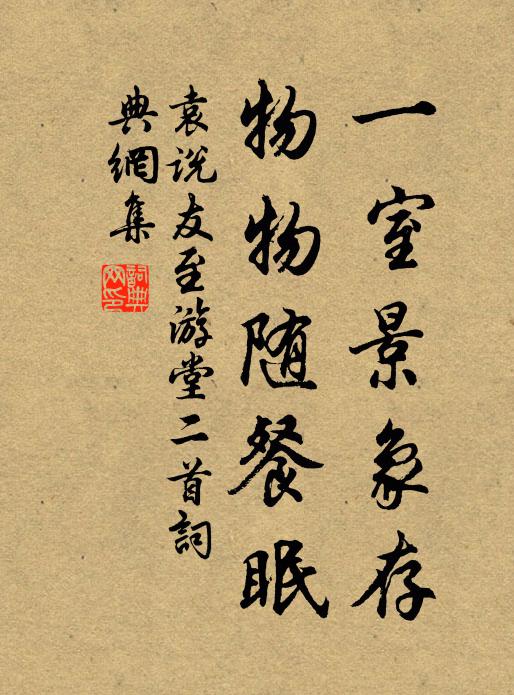 一室景象存
物物随餐眠
袁说友至游堂二首詞
典網集
詞典網印